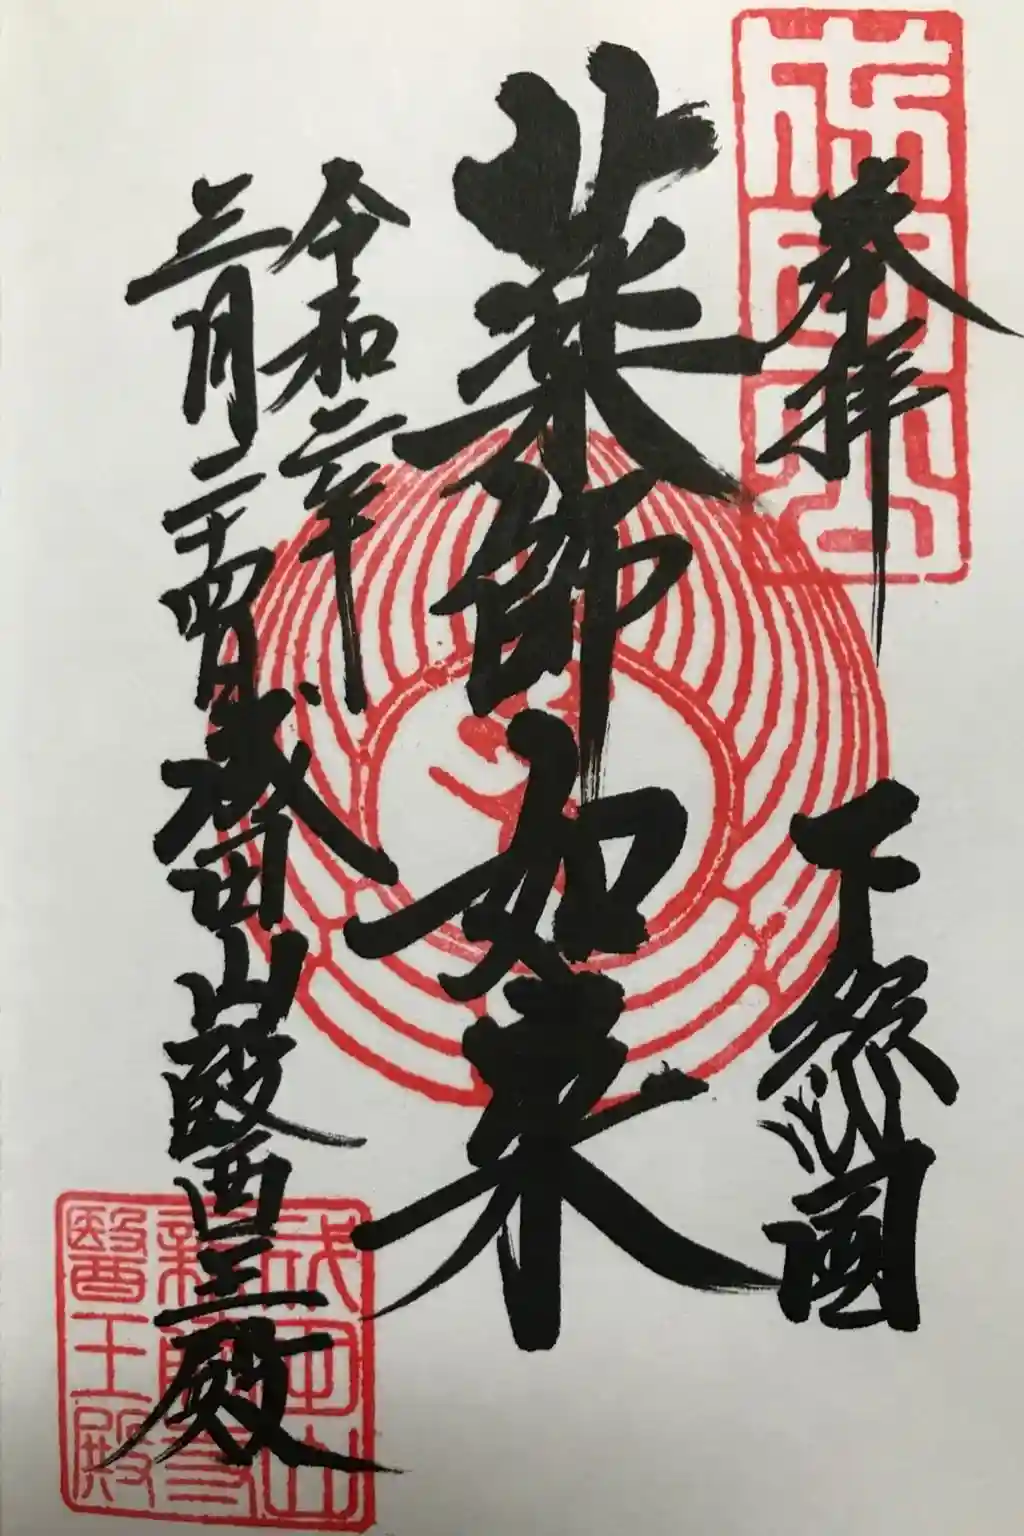 奉拝
下総國
薬師如来
令和二年
三月二十四日
成田山醫王殿
成田山
醫王殿